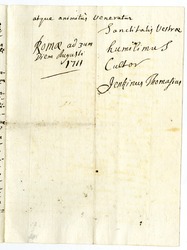 atque anomatus veneratur
Sanctitatis Vestræ
Romæ ad 3um
diem Augusti
1711
humilimus
Cultor
Jenkinus Thomasius